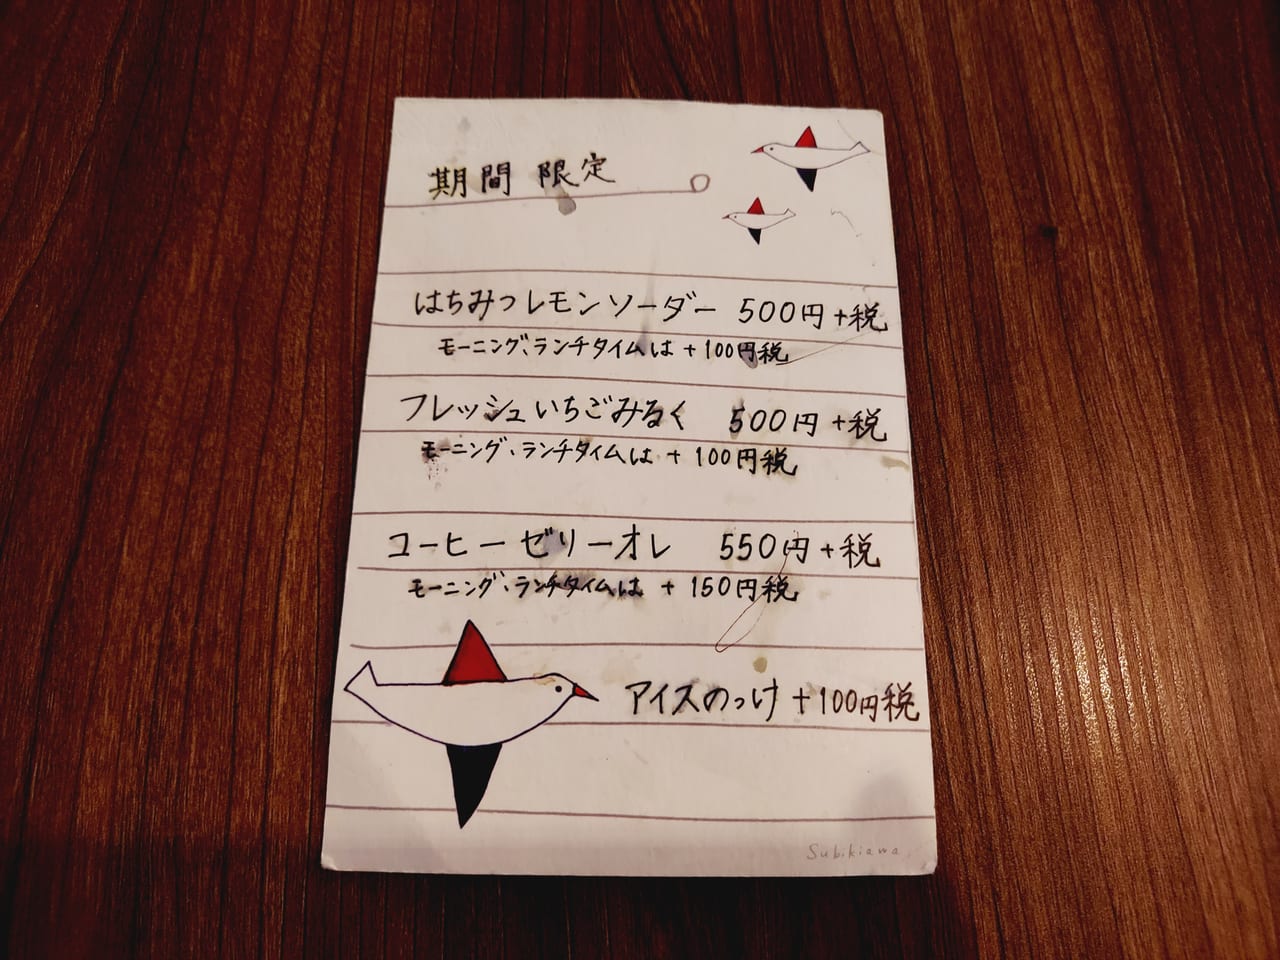 期間 限定
はちみつレモンソーダー 500円+税
モーニング、ランチタイムは +100円税
フレッシュいちごみるく 500円+税
モーニング、ランチタイムは +100円税
コーヒーゼリーオレ 550円+税
モーニング、ランチタイムは +150円税
アイスのっけ +100円税
Subikiawa